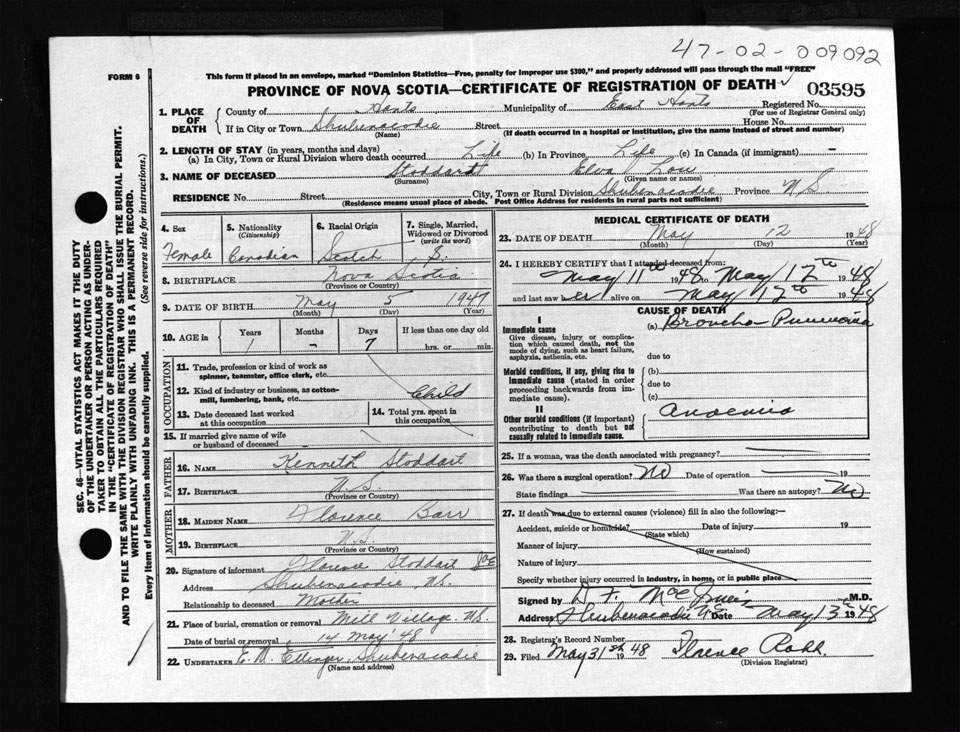 47-02-009092
FORM 6
This form if placed in an envelope, marked "Dominion Statistics—Free, penalty for improper use $300," and properly addressed will pass through the mail "FREE"
PROVINCE OF NOVA SCOTIA—CERTIFICATE OF REGISTRATION OF DEATH
03595
1. PLACE OF DEATH
County of Hants Municipality of East Hants Registered No.
(For use of Registrar General only)
If in City or Town Shubenacadie Street House No.
(Name) (If death occurred in a hospital or institution, give the name instead of street and number)
2. LENGTH OF STAY (in years, months and days)
(a) In City, Town or Rural Division where death occurred Life (b) In Province Life (c) In Canada (if immigrant) —
3. NAME OF DECEASED Stoddart Elva
(Surname) (Given name or names)
RESIDENCE No. Street City, Town or Rural Division Shubenacadie Province N.S.
(Residence means usual place of abode. Post Office Address for residents in rural parts not sufficient)
4. Sex 5. Nationality (Citizenship) 6. Racial Origin 7. Single, Married, Widowed or Divorced (write the word)
Female Canadian Scotch S.
8. BIRTHPLACE Nova Scotia
(Province or Country)
9. DATE OF BIRTH May 5 1947
(Month) (Day) (Year)
10. AGE in Years Months Days If less than one day old
1 – 7 hrs. or min.
OCCUPATION
11. Trade, profession or kind of work as spinner, teamster, office clerk, etc.
12. Kind of industry or business, as cotton-mill, lumbering, bank, etc. Child
13. Date deceased last worked at this occupation
14. Total yrs. spent in this occupation
15. If married give name of wife or husband of deceased
FATHER
16. NAME Kenneth Stoddart
17. BIRTHPLACE N.S.
(Province or Country)
MOTHER
18. MAIDEN NAME Florence Barr
19. BIRTHPLACE N.S.
(Province or Country)
20. Signature of informant Florence Stoddart
Address Shubenacadie N.S.
Relationship to deceased Mother
21. Place of burial, cremation or removal Mill Village. N.S.
Date of burial or removal 14 May '48
22. UNDERTAKER E. M. Ettinger, Shubenacadie
(Name and address)
MEDICAL CERTIFICATE OF DEATH
23. DATE OF DEATH May 12 1948
(Month) (Day) (Year)
24. I HEREBY CERTIFY that I attended deceased from:
May 11th 1948 to May 12th 1948
and last saw her alive on May 12th 1948
CAUSE OF DEATH
I
Immediate cause (a) Broncho-Pneumonia
Give disease, injury or complication which caused death, not the mode of dying, such as heart failure, asphyxia, asthenia, etc.
due to
Morbid conditions, if any, giving rise to immediate cause (stated in order proceeding backwards from immediate cause).
(b)
due to
(c)
II
Other morbid conditions (if important) contributing to death but not causally related to immediate cause.
Anaemia
25. If a woman, was the death associated with pregnancy?
26. Was there a surgical operation? No Date of operation 19
State findings Was there an autopsy? No
27. If death was due to external causes (violence) fill in also the following:—
Accident, suicide or homicide? Date of injury 19
(State which)
Manner of injury
(How sustained)
Nature of injury
Specify whether injury occurred in industry, in home, or in public place
Signed by D. F. M.D.
Address Shubenacadie N.S. Date May 13th 1948
28. Registrar's Record Number
29. Filed May 31st 1948 Florence
(Division Registrar)
SEC. 46—VITAL STATISTICS ACT MAKES IT THE DUTY
OF THE UNDERTAKER OR PERSON ACTING AS UNDER-
TAKER TO OBTAIN ALL THE PARTICULARS REQUIRED
IN THE "CERTIFICATE OF REGISTRATION OF DEATH"
AND TO FILE THE SAME WITH THE DIVISION REGISTRAR WHO SHALL ISSUE THE BURIAL PERMIT.
WRITE PLAINLY WITH UNFADING INK. THIS IS A PERMANENT RECORD.
Every item of information should be carefully supplied. (See reverse side for instructions.)